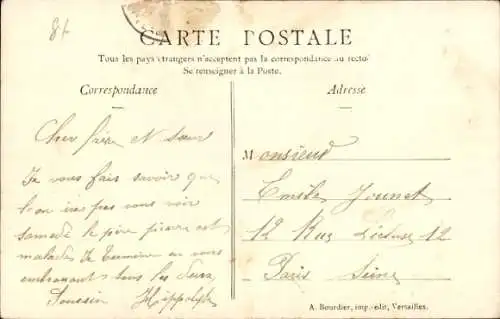 81
CARTE POSTALE
Tous les pays étrangers n'acceptent pas la correspondance au recto
Se renseigner à la Poste.
Correspondance
Cher frère et Sœur
Je vous fais savoir que
l'on ira pas vous voir
samedi le père pierre est
malade Je termine en vous
embrassant tous les deux
Hippolyte
Adresse
Monsieur
Emile Jounet
12 Rue 12
Paris Seine
A. Bourdier, imp.-édit, Versailles.